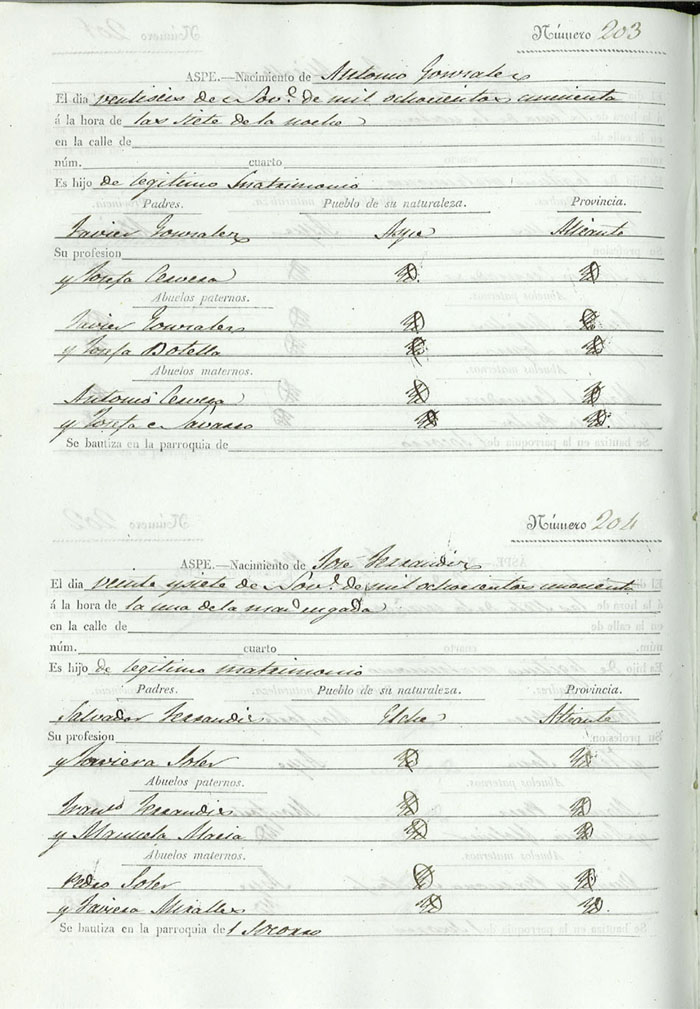 Número 203
ASPE.—Nacimiento de Antonio Gonzalez
El dia ventiseis de Nov.e de mil ochocientos cuncuenta
á la hora de las siete de la noche
en la calle de
núm. cuarto
Es hijo de legitimo matrimonio
Padres. Pueblo de su naturaleza. Provincia.
Javier Gonzalez Aspe Alicante
Su profesion
y Josefa Cervera Yd. Yd
Abuelos paternos.
Javier Gonzalez Yd Yd
y Josefa Botella Yd Yd
Abuelos maternos.
Antonio Cervera Yd Yd
y Josefa Yd Yd.
Se bautiza en la parroquia de
Número 204
ASPE.—Nacimiento de Jose Ferrandiz
El dia veinte y siete de Nov.e de mil ochocientos
á la hora de la una de la madrugada
en la calle de
núm. cuarto
Es hijo de legitimo matrimonio
Padres. Pueblo de su naturaleza. Provincia.
Salvador Ferrandiz Elche Alicante
Su profesion
y Javiera Soler Yd Yd
Abuelos paternos.
Ferrandiz Yd Yd
y Manuela Maria Yd Yd
Abuelos maternos.
Pedro Soler Yd Yd
y Javiera Miralles Yd Yd.
Se bautiza en la parroquia del Socorro